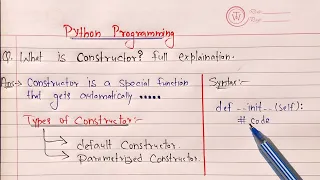 Python Programming
Q. What is Constructor? full explaination.
Ans→ Constructor is a special function
that gets automatically ......
Types of Constructor:-
default Constructor.
Parametrized Constructor.
Syntax:-
def __init__(self):
# code